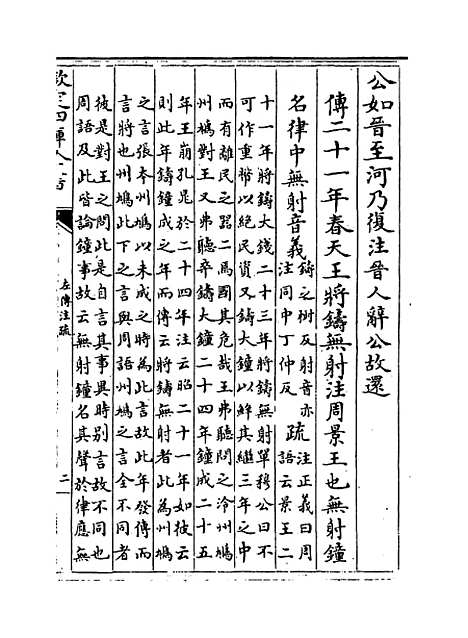 公如晉至河乃復注晉人辭公故還
傳二十一年春天王將鑄無射注周景王也無射鐘
名律中無射音義鑄之樹反射音亦注同中丁仲反疏注正義曰周語云景王二
十一年將鑄大錢二十三年將鑄無射單穆公曰不
可作重幣以絶民資又鑄大鐘以鮮其繼三年之中
而有離民之器二焉國其危哉王弗聽問之泠州鳩
州鳩對王又弗聽卒鑄大鐘二十四年鐘成二十五
年王崩孔晁於二十四年注云昭二十一年如彼云
則此年鑄鐘成之年而傳云將鑄無射者此為州鳩
之言張本州鳩以未成之時為此言故此年發傳而
言將也州鳩此下之言與周語州鳩之言全不同者
彼是對王之問此是自言其事異時別言故不同也
周語及此皆論鐘事故云無射鐘名其聲於律應無
欽定四庫全書
左傳注疏
二